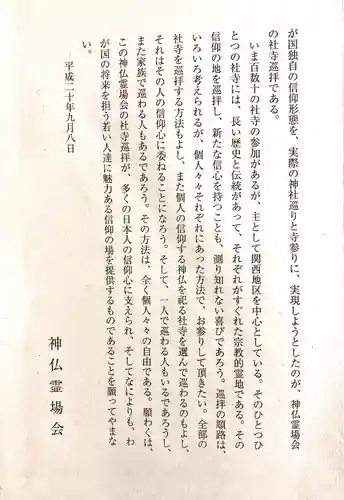 が国独自の信仰形態を、実際の神社巡りと寺参りに、実現しようとしたのが、神仏霊場会
の社寺巡拝である。
いま百数十の社寺の参加があるが、主として関西地区を中心としている。そのひとつひ
とつの社寺には、長い歴史と伝統があって、それぞれがすぐれた宗教的霊地である。その
信仰の地を巡拝し、新たな信心を持つことも、測り知れない喜びであろう。巡拝の順路は、
いろいろ考えられるが、個人々々それぞれにあった方法で、お参りして頂きたい。全部の
社寺を巡拝する方法もよし、また個人の信仰する神仏を祀る社寺を選んで巡わるのもよし、
それはその人の信仰心に委ねることになろう。そして、一人で巡わる人もいるであろうし、
また家族で巡わる人もあるであろう。その方法は、全く個人々々の自由である。願わくは、
この神仏霊場会の社寺巡拝が、多くの日本人の信仰心に支えられ、そしてなによりも、わ
が国の将来を担う若い人達に魅力ある信仰の場を提供するものであることを願ってやまな
い。
平成二十年九月八日
神仏霊場会